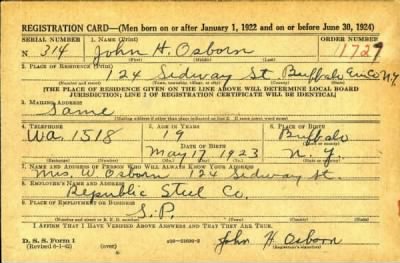 REGISTRATION CARD—(Men born on or after January 1, 1922 and on or before June 30, 1924)
SERIAL NUMBER 1. NAME (Print) ORDER NUMBER
N 314 John H. Osborn 11729
(First) (Middle) (Last)
2. PLACE OF RESIDENCE (Print)
124 Sidway St. Buffalo Erie Co N.Y.
(Number and street) (Town, township, village, or city) (County) (State)
[THE PLACE OF RESIDENCE GIVEN ON THE LINE ABOVE WILL DETERMINE LOCAL BOARD
JURISDICTION; LINE 2 OF REGISTRATION CERTIFICATE WILL BE IDENTICAL]
3. MAILING ADDRESS
Same
[Mailing address if other than place indicated on line 2. If same insert word same]
4. TELEPHONE 5. AGE IN YEARS 6. PLACE OF BIRTH
Wa. 1518 19 Buffalo
DATE OF BIRTH
May 17 1923 N.Y.
(Exchange) (Number) (Mo.) (Day) (Yr.) (State or country)
7. NAME AND ADDRESS OF PERSON WHO WILL ALWAYS KNOW YOUR ADDRESS
Mrs. W. Osborn 124 Sidway St.
8. EMPLOYER'S NAME AND ADDRESS
Republic Steel Co.
9. PLACE OF EMPLOYMENT OR BUSINESS
S.P.
(Number and street or R. F. D. number) (Town) (County) (State)
I AFFIRM THAT I HAVE VERIFIED ABOVE ANSWERS AND THAT THEY ARE TRUE.
D. S. S. Form 1
(Revised 6-1-42) (over) John H Osborn